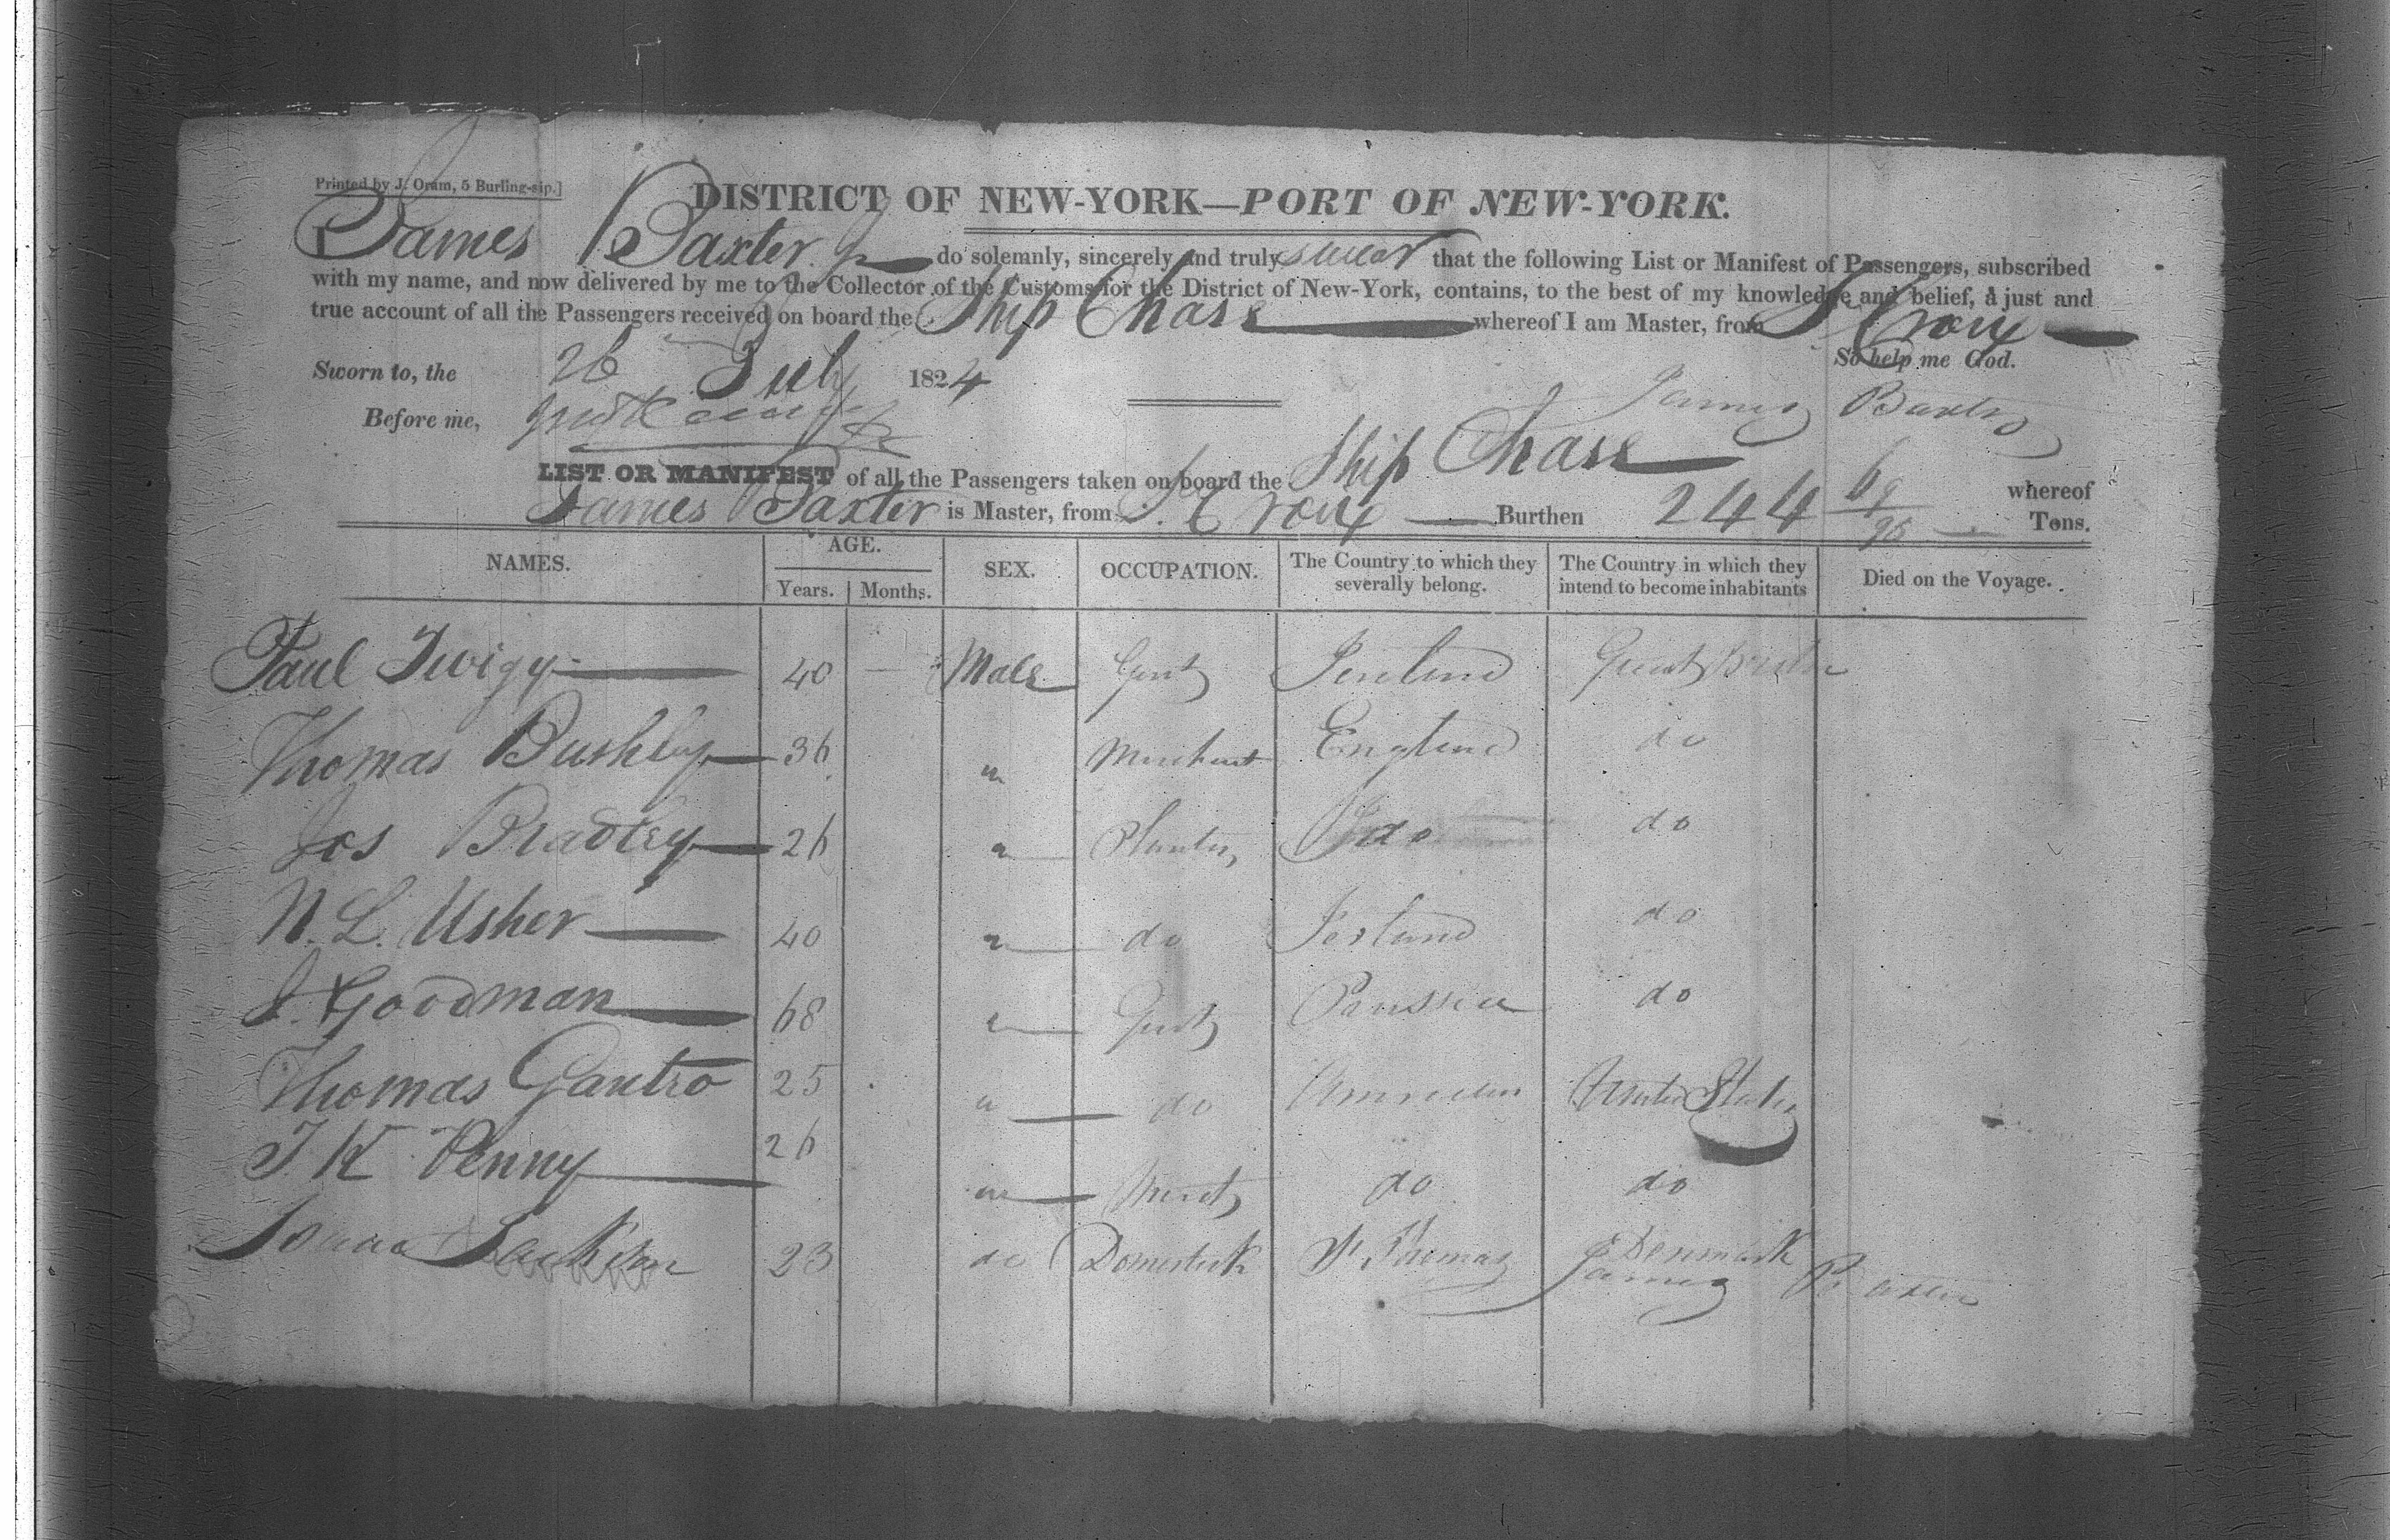 Printed by J. Oram, 5 Burling-slp.]
DISTRICT OF NEW-YORK—PORT OF NEW-YORK.
I James Baxter Jr do solemnly, sincerely and truly swear that the following List or Manifest of Passengers, subscribed
with my name, and now delivered by me to the Collector of the Customs for the District of New-York, contains, to the best of my knowledge and belief, a just and
true account of all the Passengers received on board the Ship Chase whereof I am Master, from St Croix
So help me God.
Sworn to, the 26 July 1824
James Baxter
Before me,
LIST OR MANIFEST of all the Passengers taken on board the Ship Chase whereof
James Baxter is Master, from St. Croix Burthen 244 69/95 Tons.
NAMES. AGE. Years. Months. SEX. OCCUPATION. The Country to which they severally belong. The Country in which they intend to become inhabitants Died on the Voyage.
Paul Twigy 40 — Male Gent Ireland Great Britain
Thomas Bushby 36 " Merchant England do
Jos Bradley 26 " Planter do do
N. L. Usher 40 " do Ireland do
J. Goodman 68 " Gent Prussia do
Thomas Gantro 25 " do American United States
J K Penny 26 " Mercht do do
23 do Domestick St Thomas Denmark
James Baxter